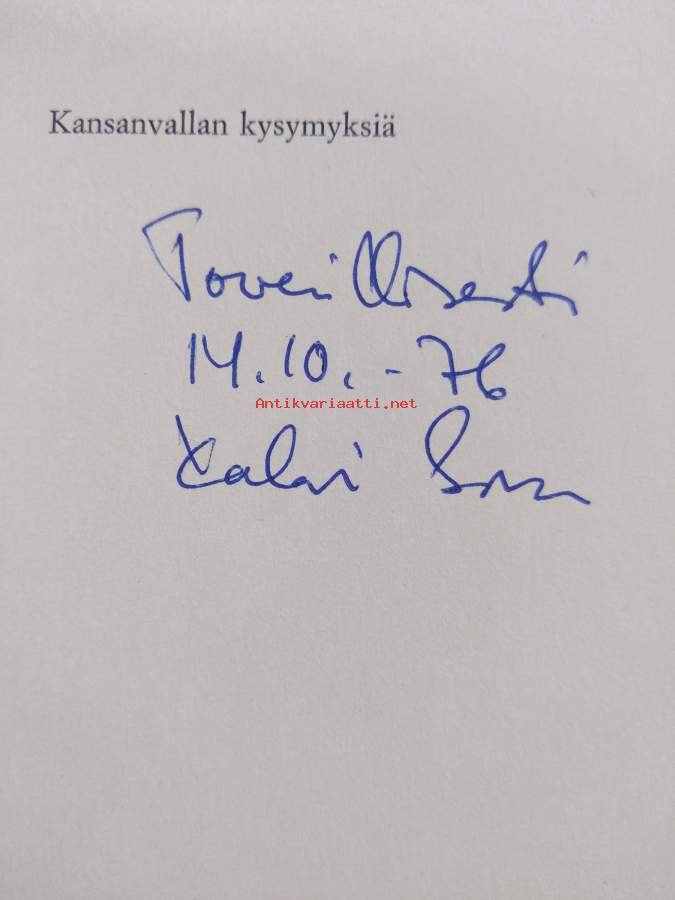 Kansanvallan kysymyksiä
Toveri
14.10.-76
Antikvariaatti.net
Kalevi Sorsa